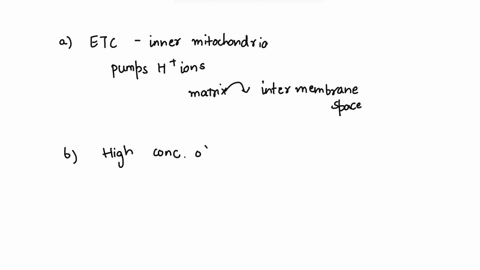 a) ETC - inner mitochondrio
pumps H+ ions
matrix intermembrane
space
b) High conc.